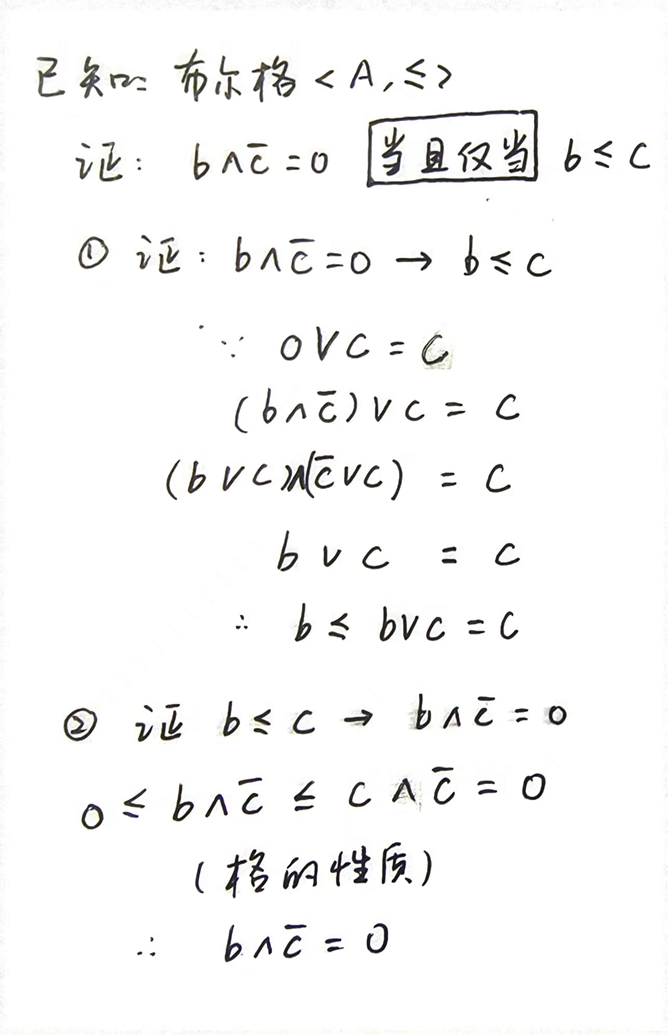 已知: 布尔格 < A, ≤ >
证: b∧c̄ = 0 当且仅当 b ≤ c
① 证: b∧c̄ = 0 → b ≤ c
∵ 0∨c = c
(b∧c̄)∨c = c
(b∨c)∧(c̄∨c) = c
b∨c = c
∴ b ≤ b∨c = c
② 证 b ≤ c → b∧c̄ = 0
0 ≤ b∧c̄ ≤ c∧c̄ = 0
(格的性质)
∴ b∧c̄ = 0